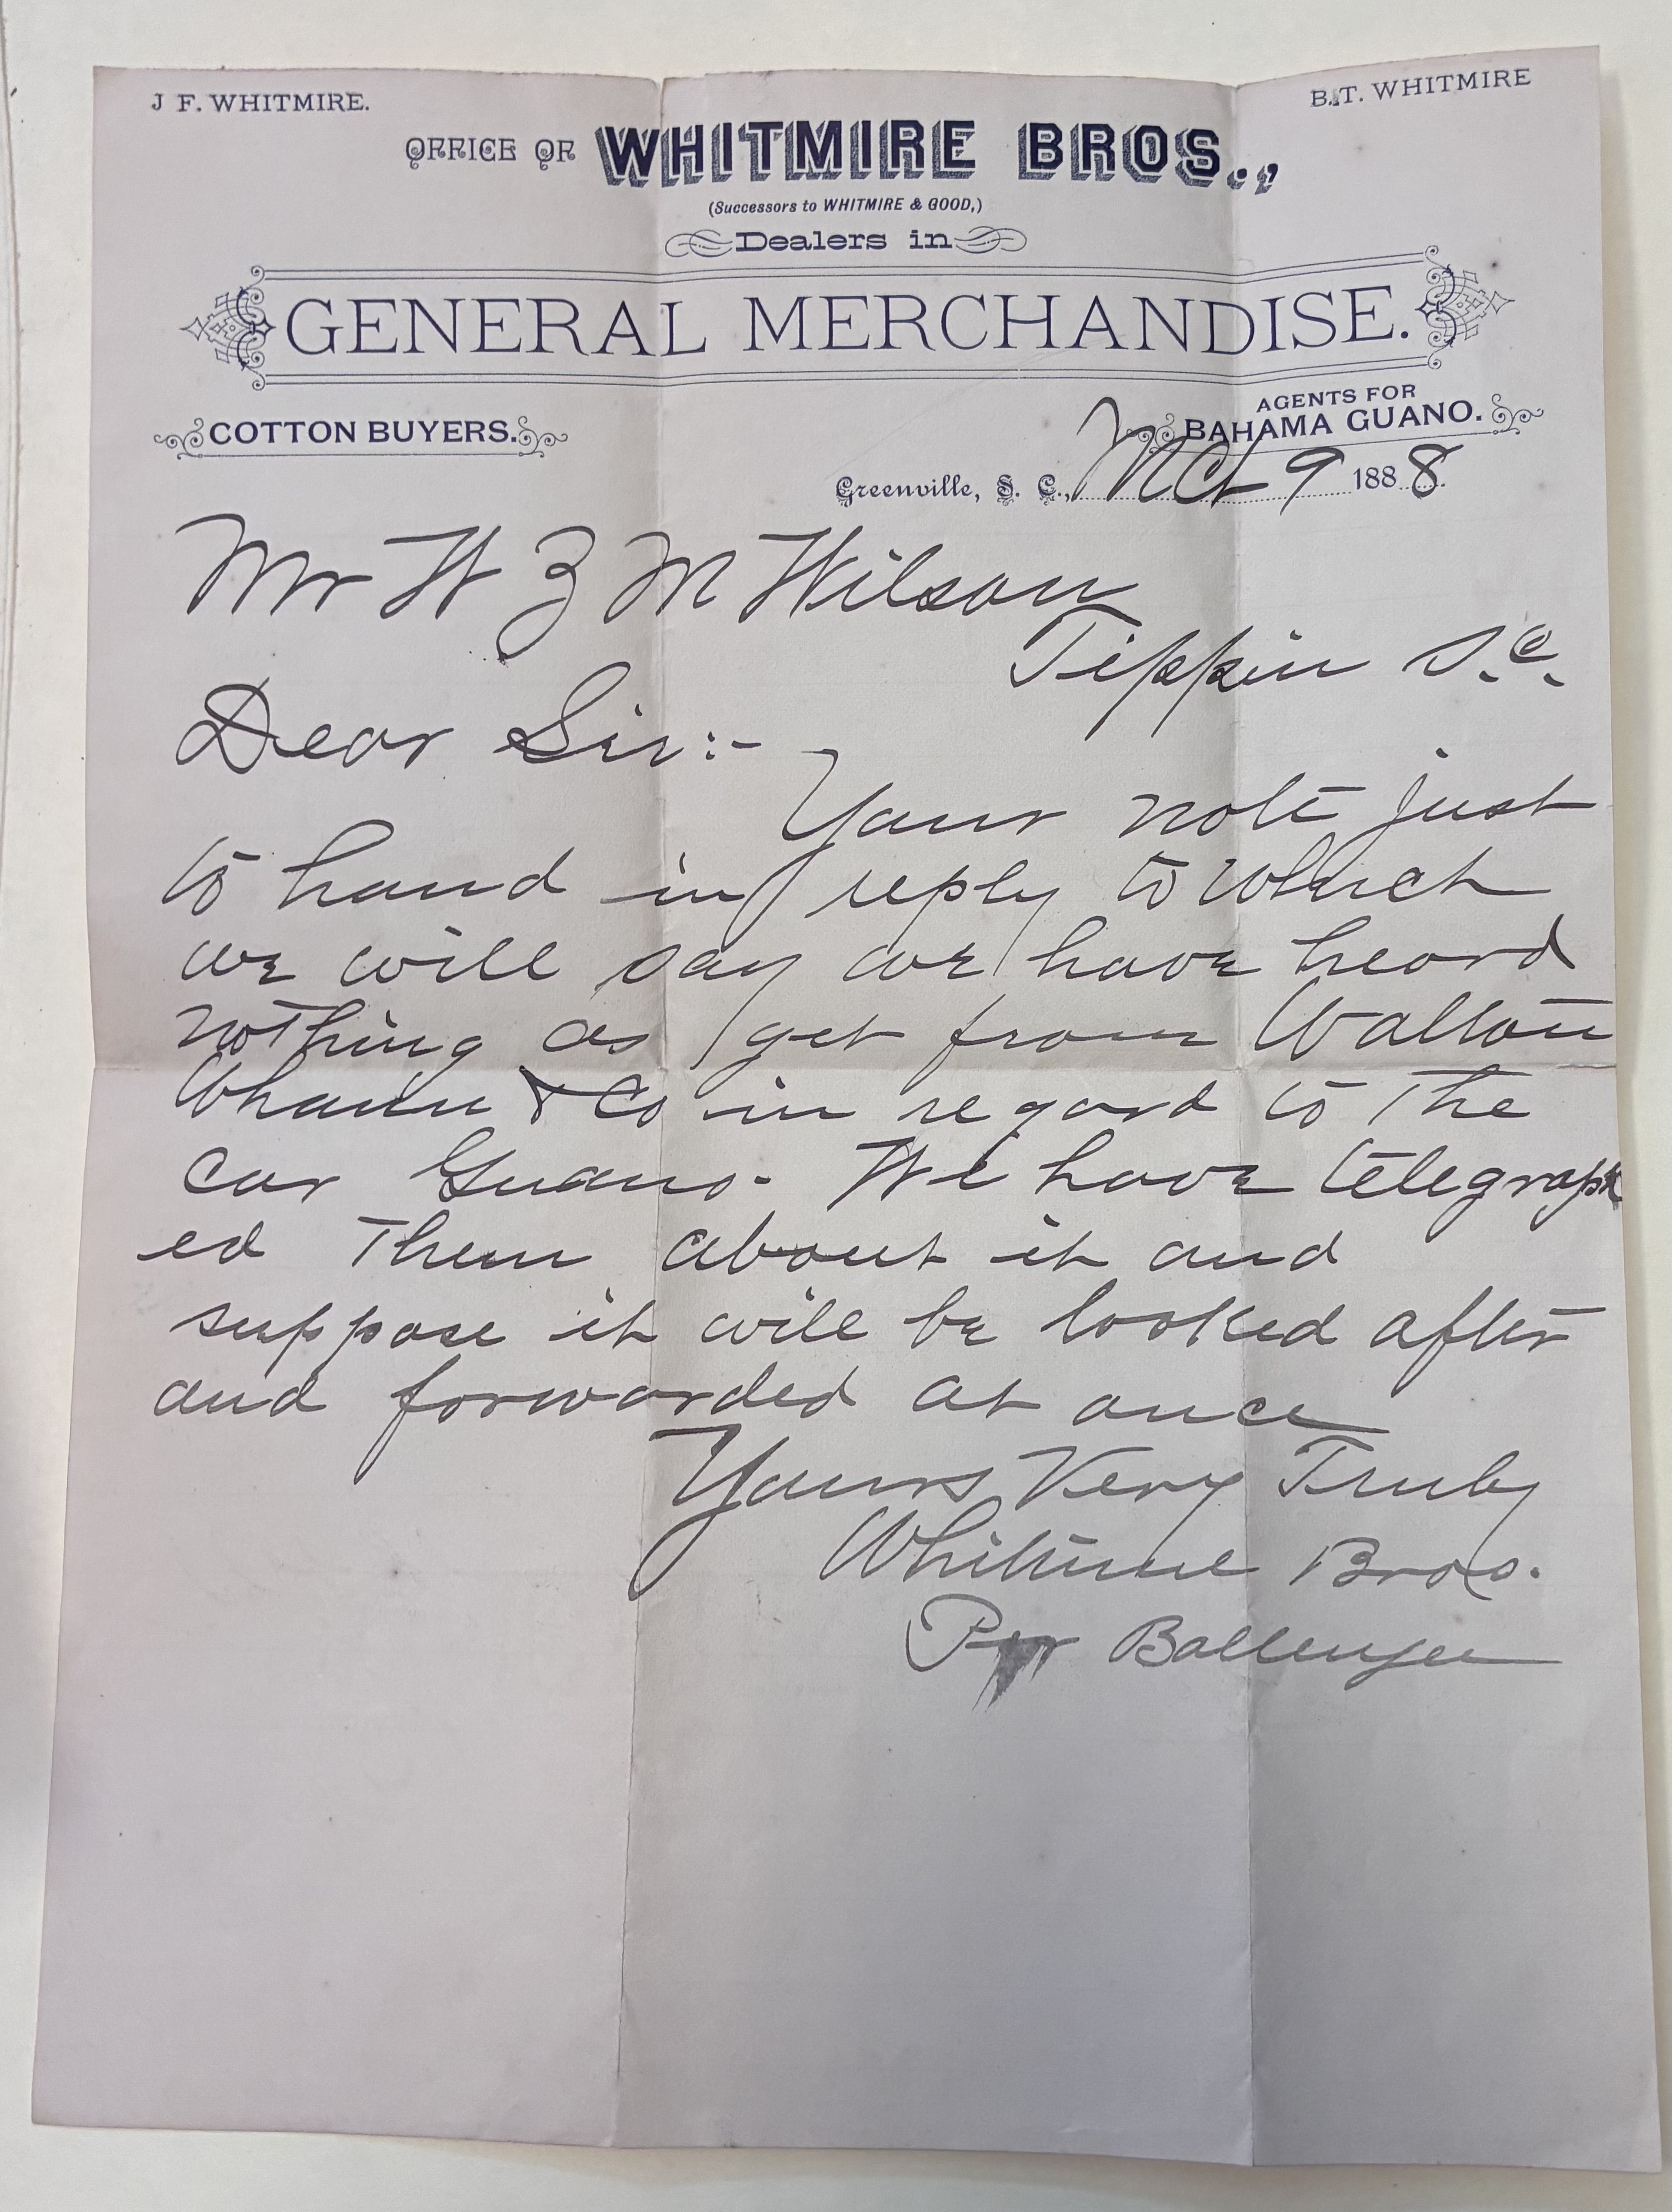 J F. WHITMIRE.
B. T. WHITMIRE
OFFICE OF WHITMIRE BROS.,
(Successors to WHITMIRE & GOOD,)
Dealers in
GENERAL MERCHANDISE.
COTTON BUYERS.
AGENTS FOR
BAHAMA GUANO.
Greenville, S. C., Mch 9 1888
Mr W Z M Wilson
Tippin S.C.
Dear Sir:-
Your note just
to hand in reply to which
we will say we have heard
nothing as yet from Walton
Whann & Co in regard to the
car Guano. We have telegraph
ed them about it and
suppose it will be looked after
and forwarded at once
Yours Very Truly
Whitmire Bros.
Per Ballenger